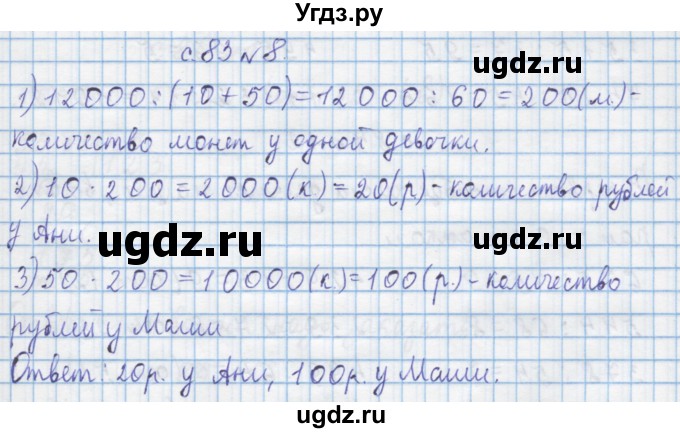 Угдз.ру
с.83 №8.
1) 12000:(10+50)=12000:60=200(м.)-
количество монет у одной девочки.
2) 10·200=2000(к)=20(р)-количество рублей
у Ани.
ugdz.ru
ugdz.ru
3) 50·200=10000(к.)=100(р.)-количество
рублей у Маши
Ответ: 20р. у Ани, 100р. у Маши.
ugdz.ru
ugdz.ru